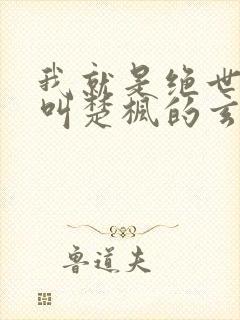 我就是绝世
叫楚枫的玄
鲁道夫